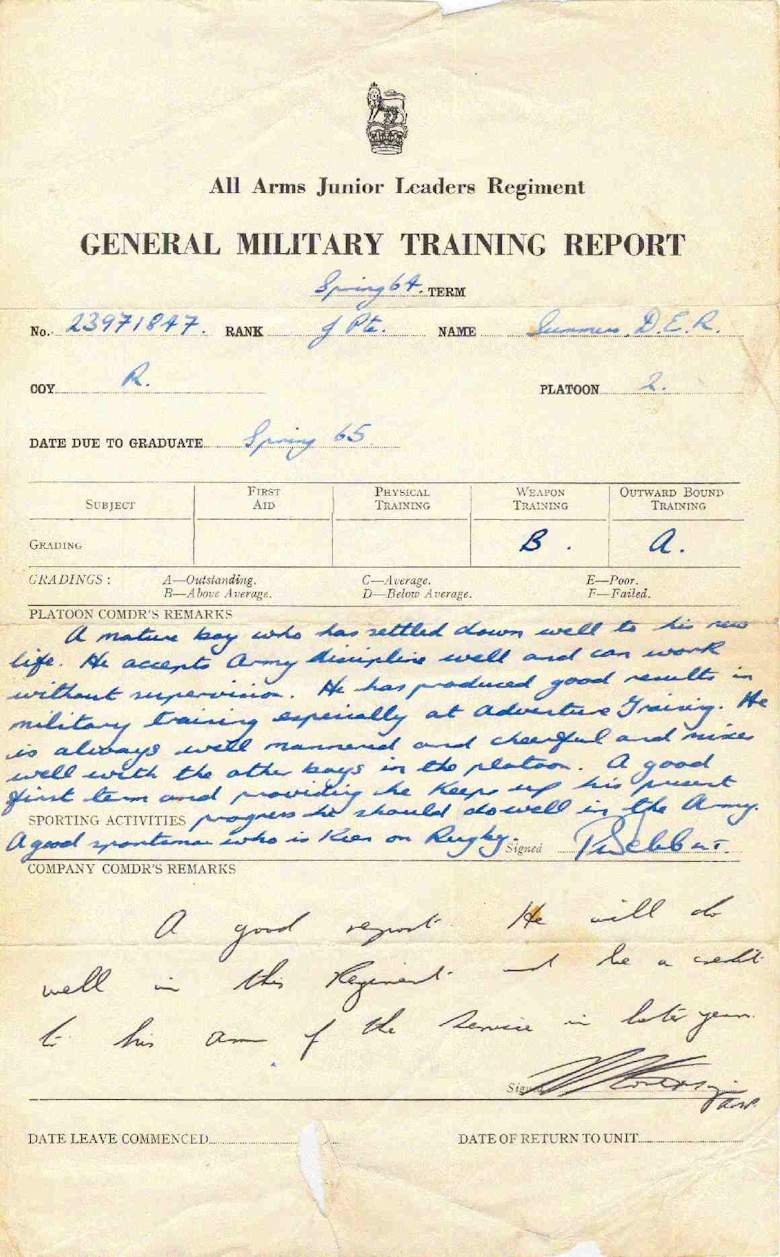 All Arms Junior Leaders Regiment
GENERAL MILITARY TRAINING REPORT
Spring 64. TERM
No. 23971847. RANK J Pte. NAME Summers, D.E.R.
COY R. PLATOON 2.
DATE DUE TO GRADUATE Spring 65
SUBJECT FIRST AID PHYSICAL TRAINING WEAPON TRAINING OUTWARD BOUND TRAINING
GRADING B. A.
GRADINGS: A—Outstanding. C—Average. E—Poor.
B—Above Average. D—Below Average. F—Failed.
PLATOON COMDR'S REMARKS
A mature boy who has settled down well to his new
life. He accepts Army discipline well and can work
without supervision. He has produced good results in
military training especially at Adventure Training. He
is always well mannered and cheerful and mixes
well with the other boys in the platoon. A good
first term and providing he keeps up his present
SPORTING ACTIVITIES progress he should do well in the Army.
A good sportsman who is keen on Rugby. Signed
COMPANY COMDR'S REMARKS
A good report. He will do
well in this Regiment and be a credit
to his arm of the Service in later years.
Signed
DATE LEAVE COMMENCED DATE OF RETURN TO UNIT